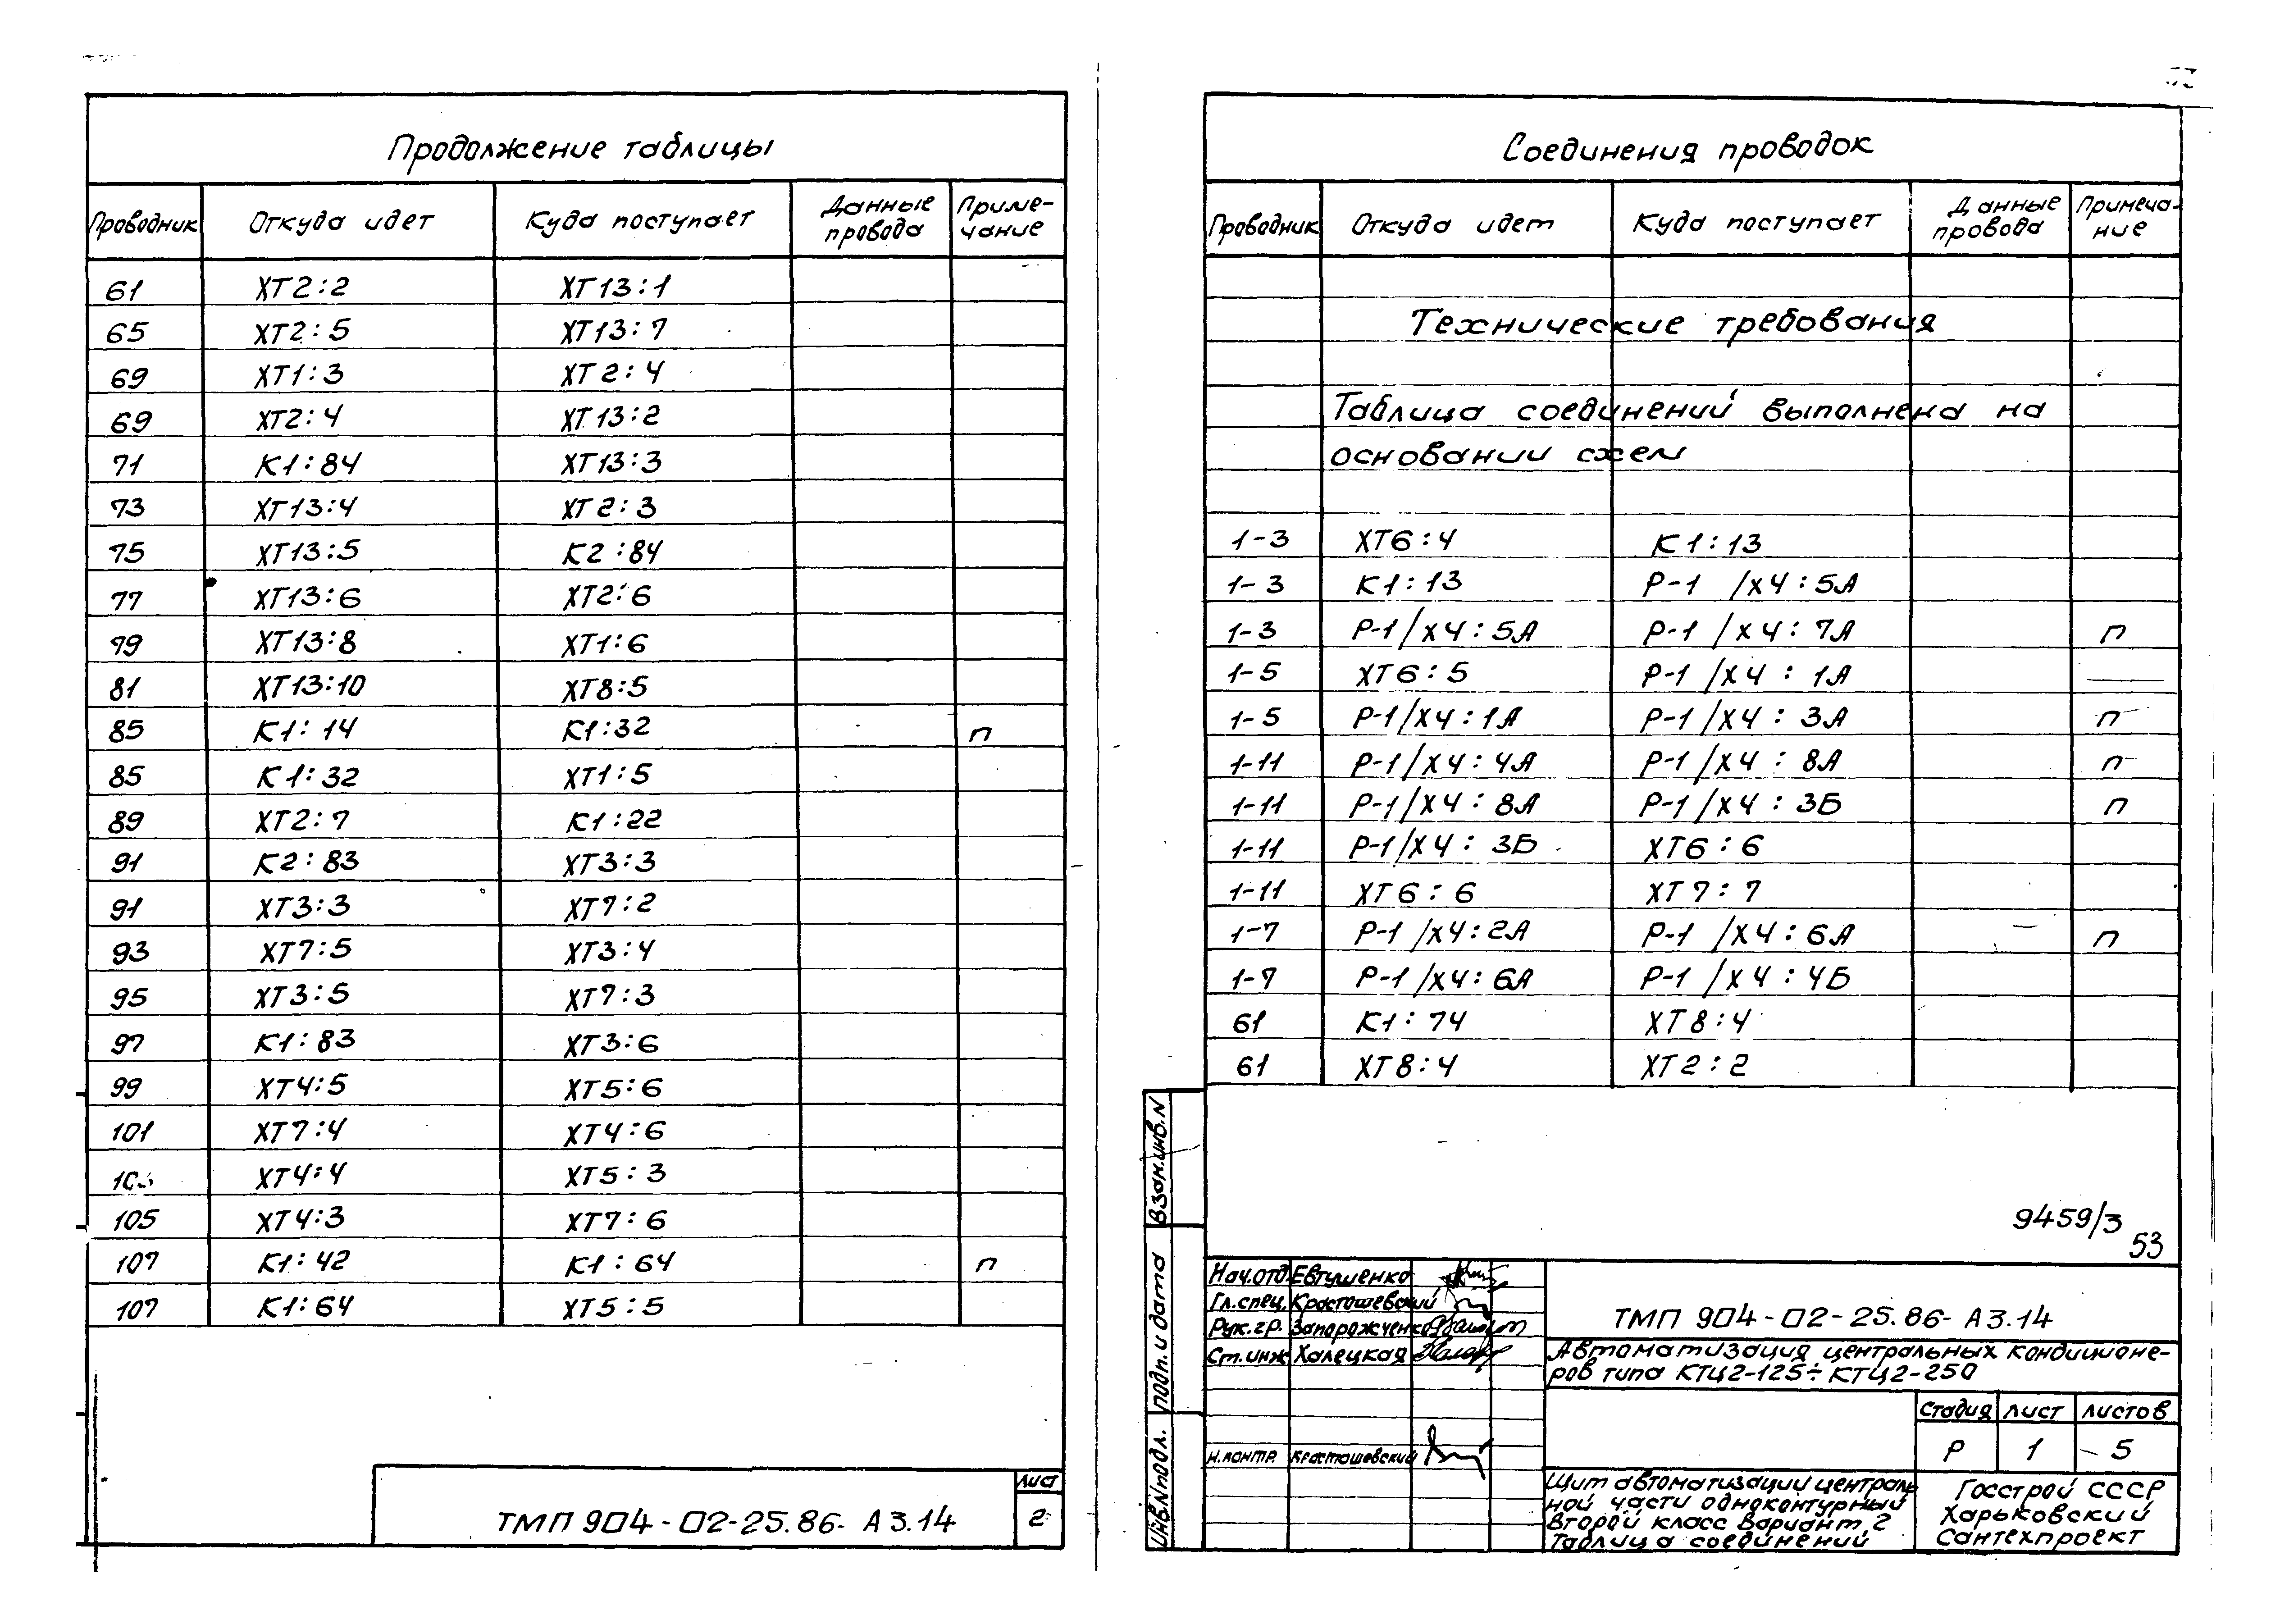 Продолжение таблицы
Проводник Откуда идет Куда поступает Данные провода Приме-чание
61 ХТ2:2 ХТ13:1
65 ХТ2:5 ХТ13:7
69 ХТ1:3 ХТ2:4
69 ХТ2:4 ХТ13:2
71 К1:84 ХТ13:3
73 ХТ13:4 ХТ2:3
75 ХТ13:5 К2:84
77 ХТ13:6 ХТ2:6
79 ХТ13:8 ХТ1:6
81 ХТ13:10 ХТ8:5
85 К1:14 К1:32 п
85 К1:32 ХТ1:5
89 ХТ2:7 К1:22
91 К2:83 ХТ3:3
91 ХТ3:3 ХТ7:2
93 ХТ7:5 ХТ3:4
95 ХТ3:5 ХТ7:3
97 К1:83 ХТ3:6
99 ХТ4:5 ХТ5:6
101 ХТ7:4 ХТ4:6
ХТ4:4 ХТ5:3
105 ХТ4:3 ХТ7:6
107 К1:42 К1:64 п
107 К1:64 ХТ5:5
ТМП 904-02-25.86- А3.14
Лист
2
Соединения проводок
Проводник Откуда идет Куда поступает Данные провода Примеча-ние
Технические требования
Таблица соединений выполнена на
основании схем
1-3 ХТ6:4 К1:13
1-3 К1:13 Р-1 /Х4:5А
1-3 Р-1/Х4:5А Р-1 /Х4:7А п
1-5 ХТ6:5 Р-1 /Х4:1А
1-5 Р-1/Х4:1А Р-1/Х4:3А п
1-11 Р-1/Х4:4А Р-1/Х4:8А п
1-11 Р-1/Х4:8А Р-1/Х4:3Б п
1-11 Р-1/Х4:3Б ХТ6:6
1-11 ХТ6:6 ХТ7:7
1-7 Р-1 /Х4:2А Р-1 /Х4:6А п
1-7 Р-1 /Х4:6А Р-1 /Х4:4Б
61 К1:74 ХТ8:4
61 ХТ8:4 ХТ2:2
9459/3
53
Взам.инв.N
подп. и дата
Инв.N подл.
Нач.отд. Евтушенко
Гл.спец. Красташевский
Рук.гр. Запорожченко
Ст.инж Халецкая
Н.контр. Красташевский
ТМП 904-02-25.86- А3.14
Автоматизация центральных кондиционе-
ров типа КТЦ2-125÷КТЦ2-250
Стадия Лист Листов
Р 1 5
Щит автоматизации централь
ной части одноконтурный
второй класс вариант 2
Таблица соединений
Госстрой СССР
Харьковский
Сантехпроект